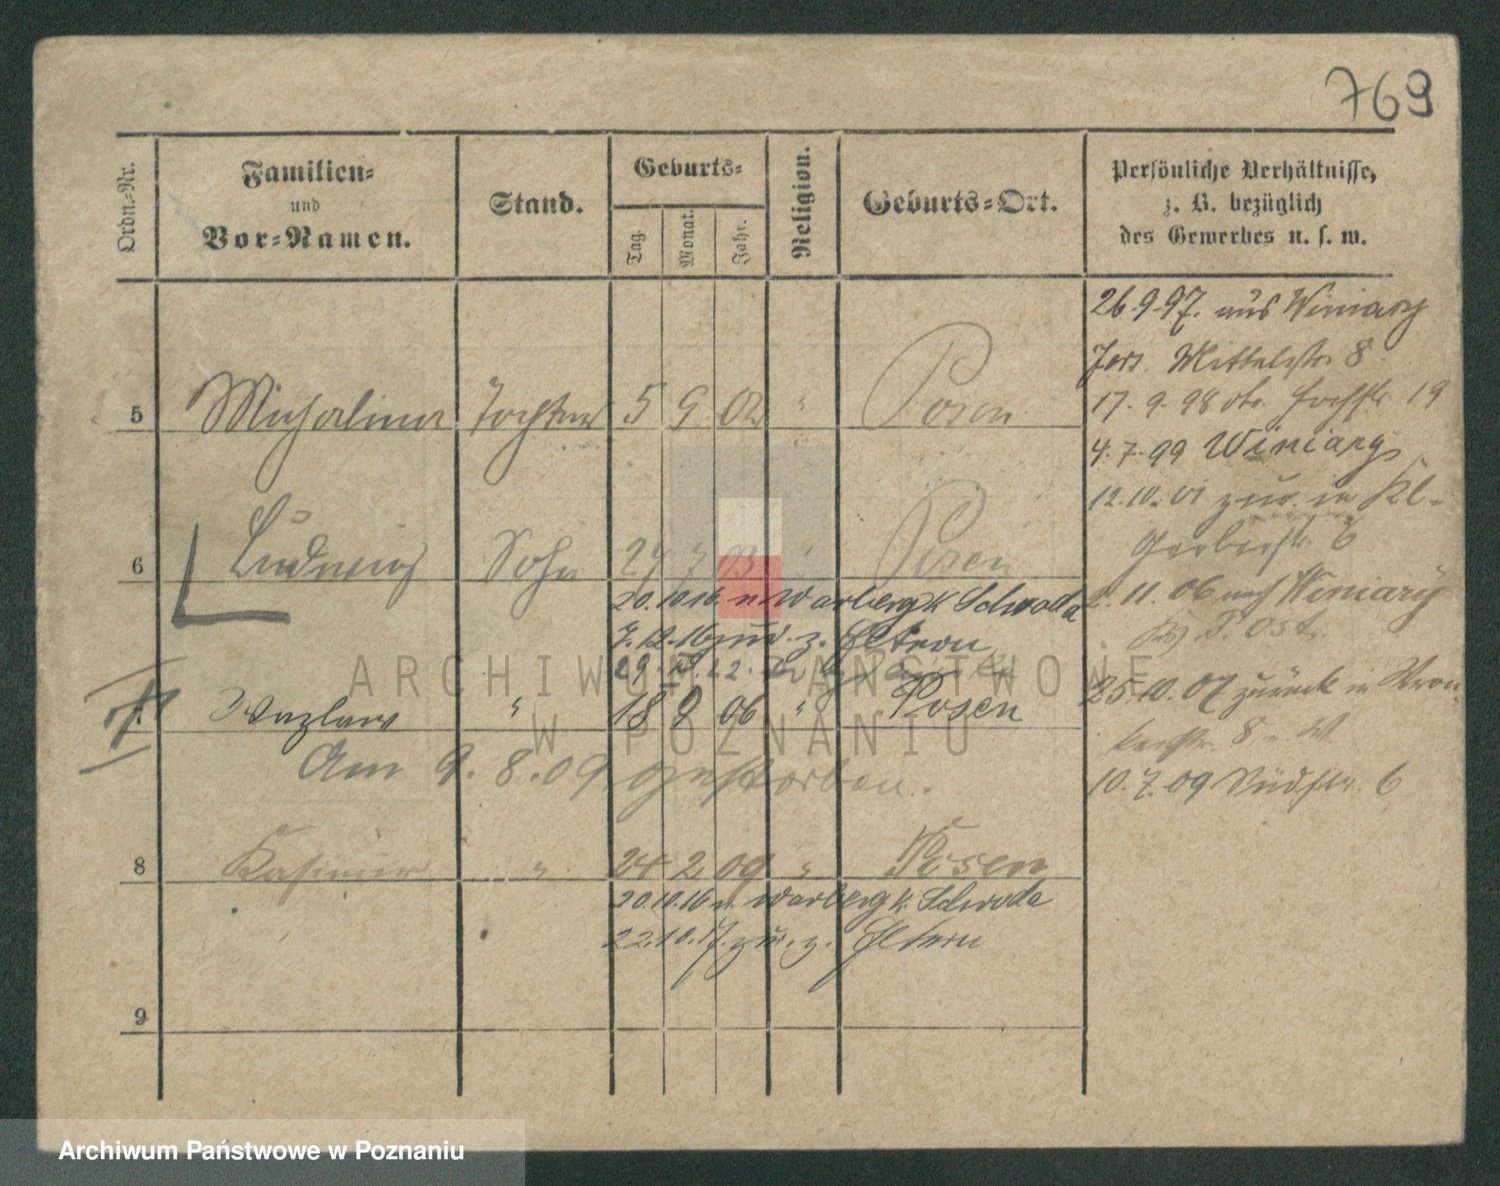 769
Ordn.-Nr.
Familien-
und
Vor-Namen.
Stand.
Geburts-
Tag.
Monat.
Jahr.
Religion.
Geburts-Ort.
Persönliche Verhältnisse,
z. B. bezüglich
des Gewerbes u. s. w.
26.9.97. aus Winiary
Mittelstr. 8
17. 9. 98 19
4. 7. 99 Winiary
12.10.01 zur. in Kl.
Gerberstr. 6
2. 11. 06 nach Winiary
P. Ost.
25.10.07 zurück in
8
10. 7. 09 Südstr. 6
5 Michalina Tochter 5 9 02 " Posen
6 Ludwig Sohn 7 03 " Posen
20.10.16 n Warberg k Schroda
7.12.16 zur. z. Eltern
29. 22.
7 Wazlaw " 18 9 06 " Posen
Am 9. 8. 09 gestorben.
8 Kasimir " 24 2 09 " Posen
20.10.16 n. Warberg k. Schroda
22.10.17. zur. z. Eltern
9
ARCHIWUM PAŃSTWOWE
W POZNANIU
Archiwum Państwowe w Poznaniu